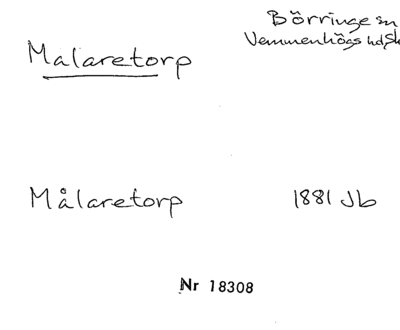 Börringe sn
Malaretorp
Vemmenhögs hd, Sk
Målaretorp
1881 Jb
Nr 18308